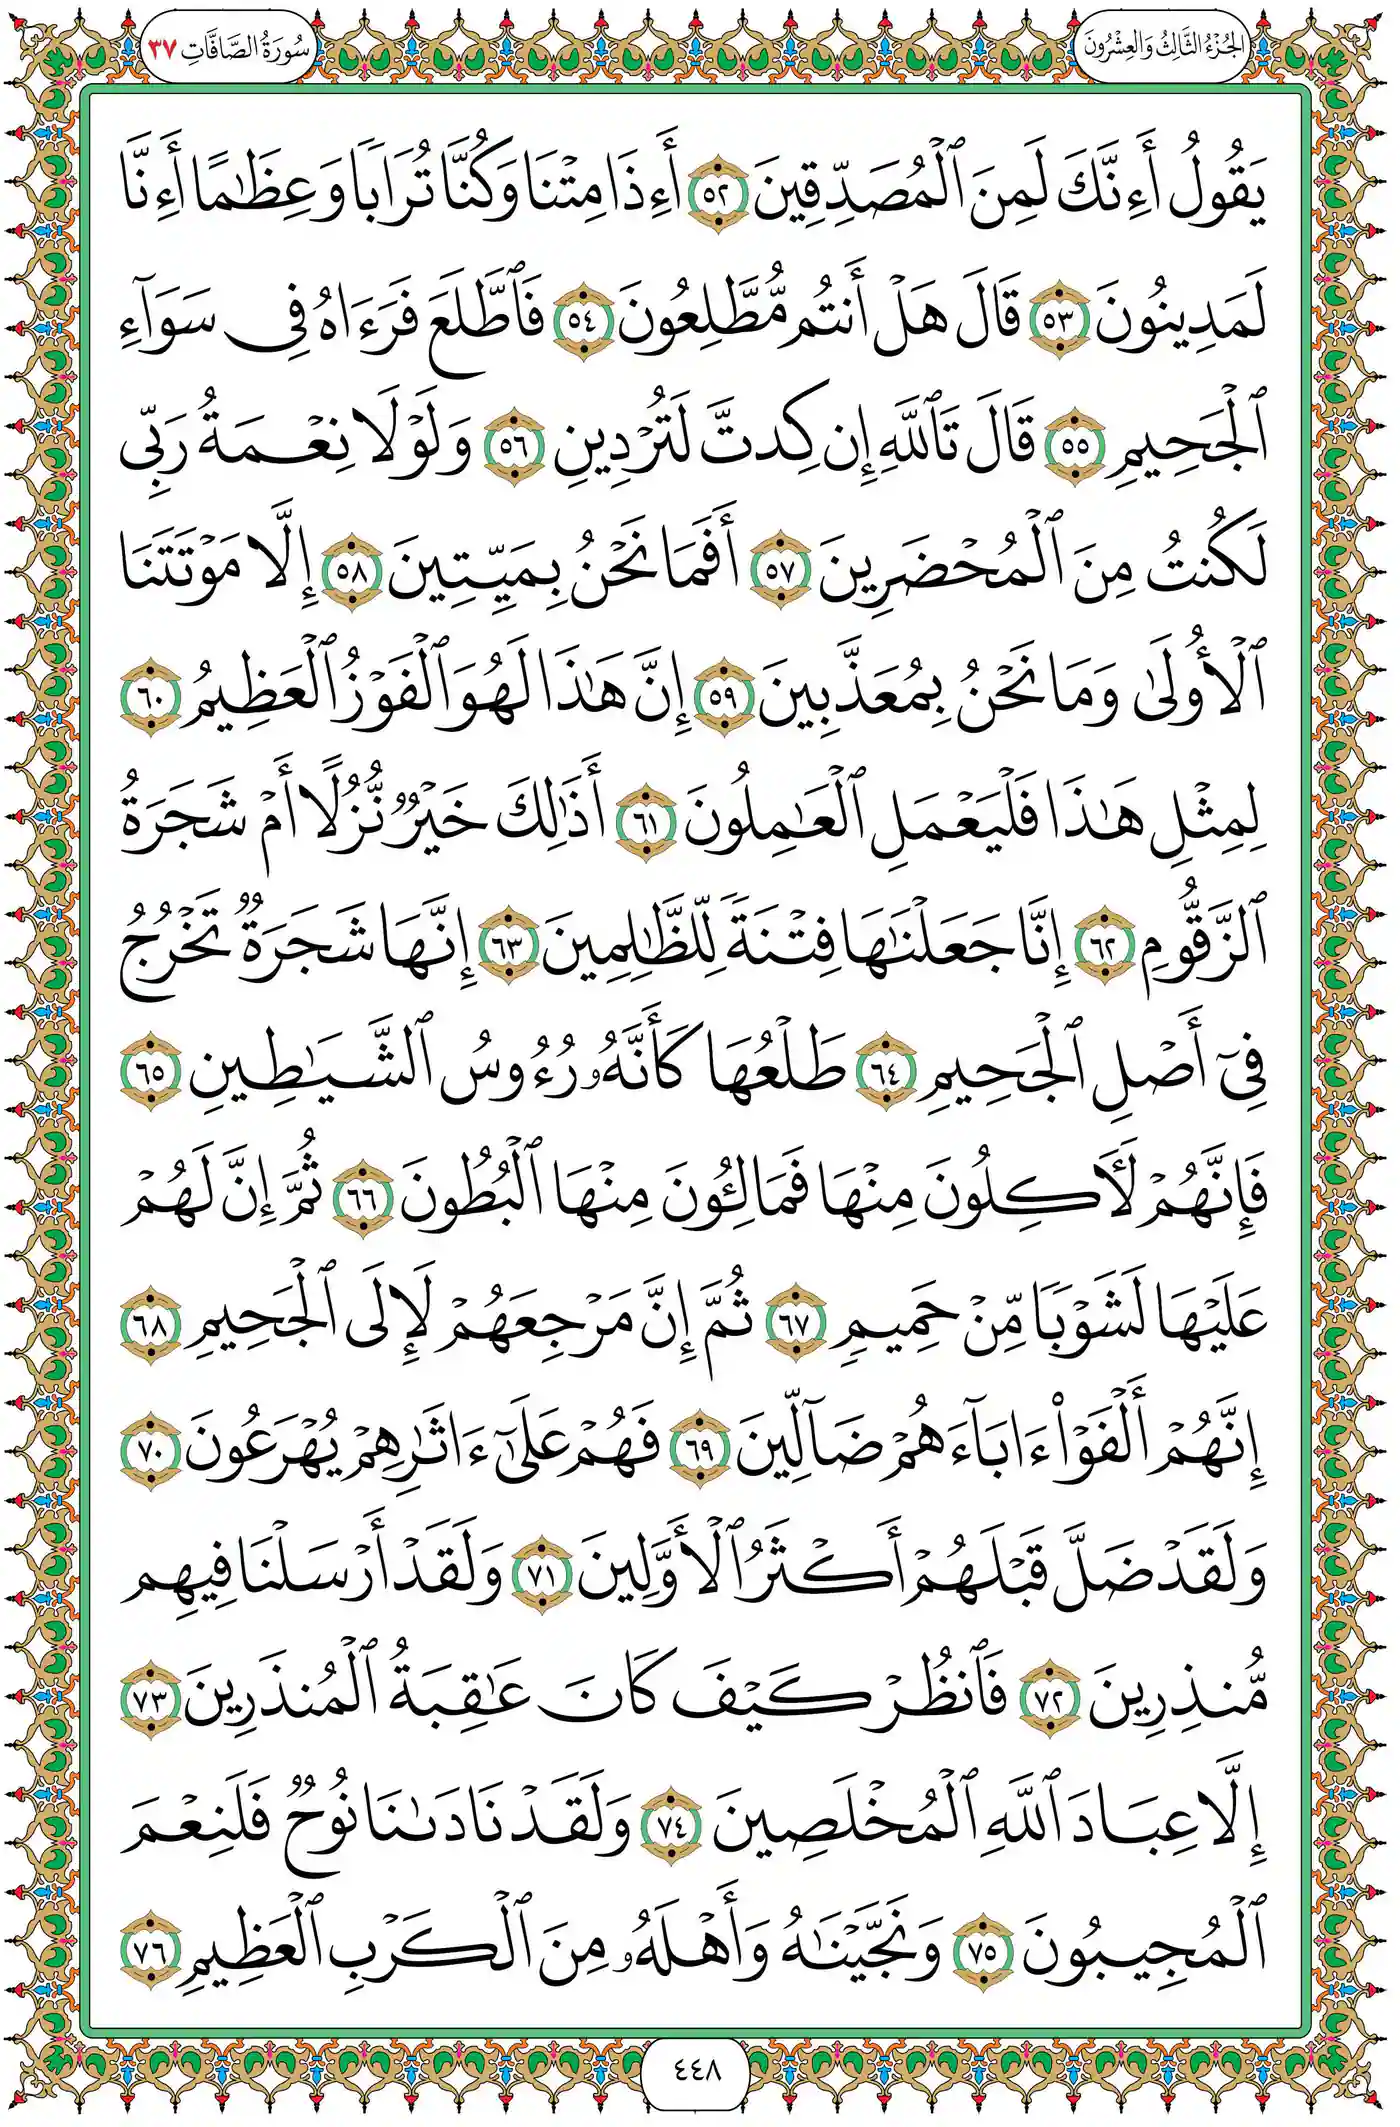 الجُزْءُ الثَّالِثُ وَالعِشْرُونَ
سُورَةُ الصَّافَّاتِ ٣٧
يَقُولُ أَءِنَّكَ لَمِنَ ٱلْمُصَدِّقِينَ ٥٢ أَءِذَا مِتْنَا وَكُنَّا تُرَابًا وَعِظَٰمًا أَءِنَّا
لَمَدِينُونَ ٥٣ قَالَ هَلْ أَنتُم مُّطَّلِعُونَ ٥٤ فَٱطَّلَعَ فَرَءَاهُ فِى سَوَآءِ
ٱلْجَحِيمِ ٥٥ قَالَ تَٱللَّهِ إِن كِدتَّ لَتُرْدِينِ ٥٦ وَلَوْلَا نِعْمَةُ رَبِّى
لَكُنتُ مِنَ ٱلْمُحْضَرِينَ ٥٧ أَفَمَا نَحْنُ بِمَيِّتِينَ ٥٨ إِلَّا مَوْتَتَنَا
ٱلْأُولَىٰ وَمَا نَحْنُ بِمُعَذَّبِينَ ٥٩ إِنَّ هَٰذَا لَهُوَ ٱلْفَوْزُ ٱلْعَظِيمُ ٦٠
لِمِثْلِ هَٰذَا فَلْيَعْمَلِ ٱلْعَٰمِلُونَ ٦١ أَذَٰلِكَ خَيْرٌ نُّزُلًا أَمْ شَجَرَةُ
ٱلزَّقُّومِ ٦٢ إِنَّا جَعَلْنَٰهَا فِتْنَةً لِّلظَّٰلِمِينَ ٦٣ إِنَّهَا شَجَرَةٌ تَخْرُجُ
فِىٓ أَصْلِ ٱلْجَحِيمِ ٦٤ طَلْعُهَا كَأَنَّهُۥ رُءُوسُ ٱلشَّيَٰطِينِ ٦٥
فَإِنَّهُمْ لَءَاكِلُونَ مِنْهَا فَمَالِـُٔونَ مِنْهَا ٱلْبُطُونَ ٦٦ ثُمَّ إِنَّ لَهُمْ
عَلَيْهَا لَشَوْبًا مِّنْ حَمِيمٍ ٦٧ ثُمَّ إِنَّ مَرْجِعَهُمْ لَإِلَى ٱلْجَحِيمِ ٦٨
إِنَّهُمْ أَلْفَوْا۟ ءَابَآءَهُمْ ضَآلِّينَ ٦٩ فَهُمْ عَلَىٰٓ ءَاثَٰرِهِمْ يُهْرَعُونَ ٧٠
وَلَقَدْ ضَلَّ قَبْلَهُمْ أَكْثَرُ ٱلْأَوَّلِينَ ٧١ وَلَقَدْ أَرْسَلْنَا فِيهِم
مُّنذِرِينَ ٧٢ فَٱنظُرْ كَيْفَ كَانَ عَٰقِبَةُ ٱلْمُنذَرِينَ ٧٣
إِلَّا عِبَادَ ٱللَّهِ ٱلْمُخْلَصِينَ ٧٤ وَلَقَدْ نَادَىٰنَا نُوحٌ فَلَنِعْمَ
ٱلْمُجِيبُونَ ٧٥ وَنَجَّيْنَٰهُ وَأَهْلَهُۥ مِنَ ٱلْكَرْبِ ٱلْعَظِيمِ ٧٦
٤٤٨